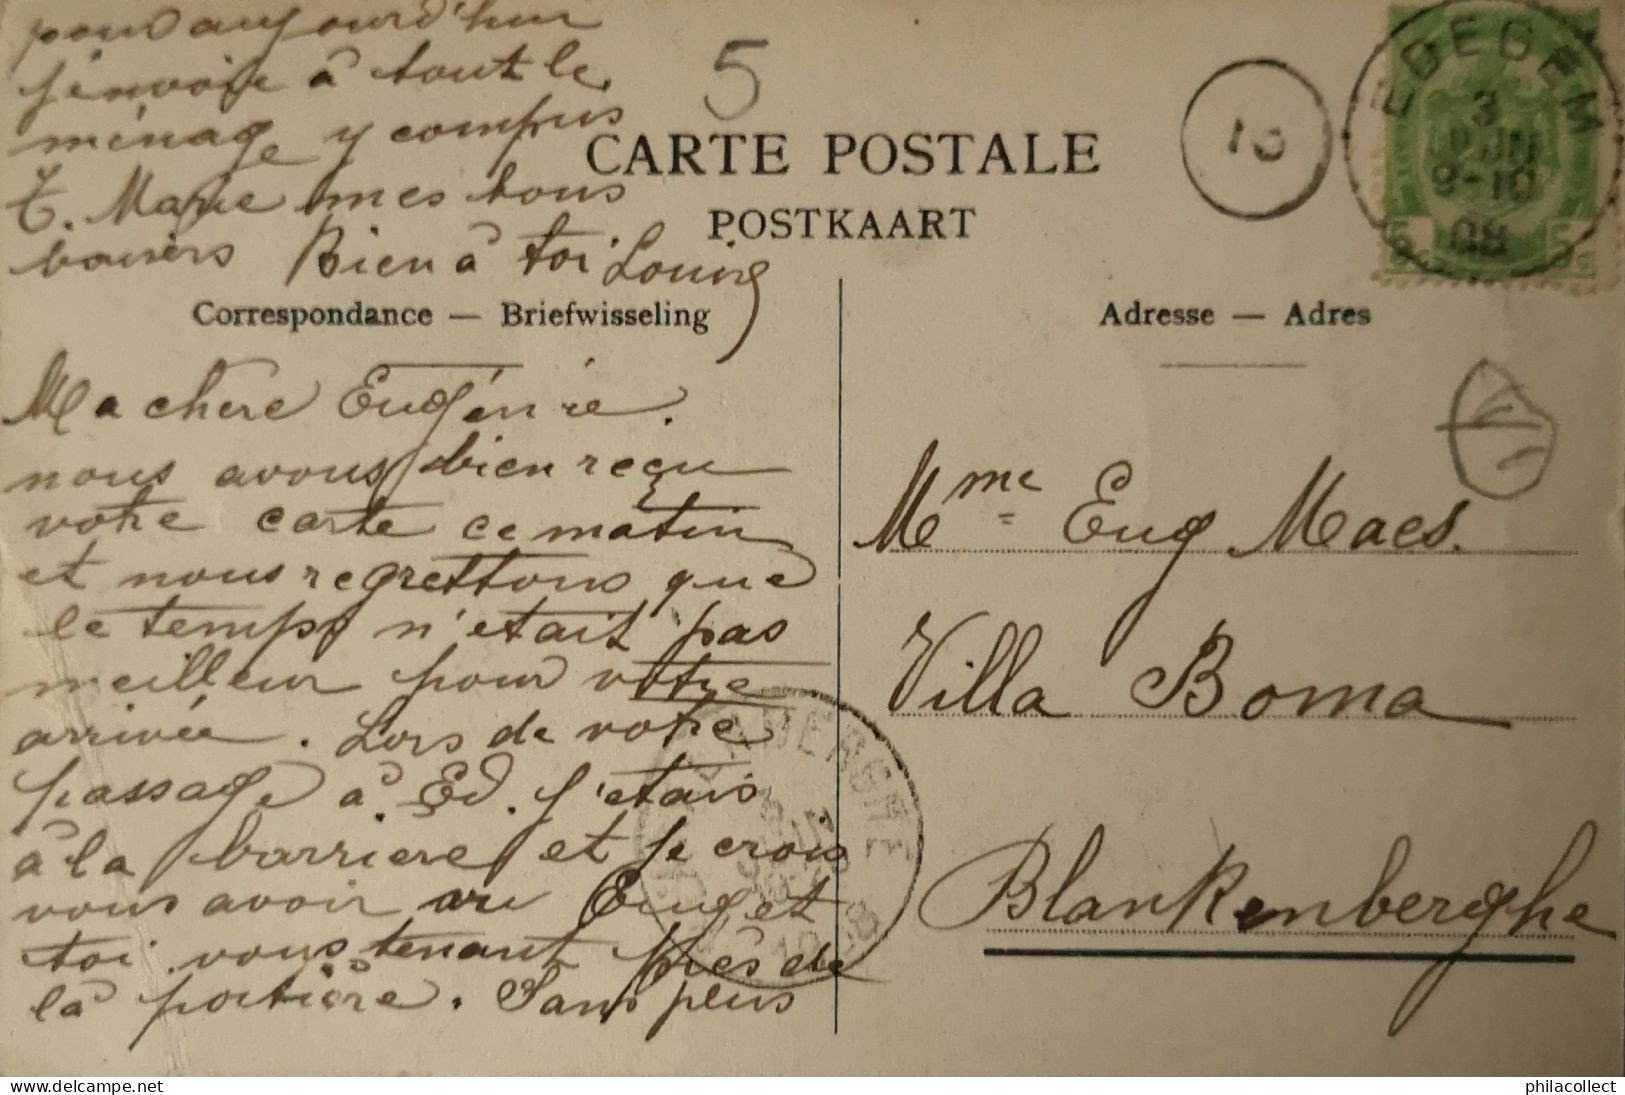 pour aujourd'hui
j'envoie à tout le
ménage y compris
T. Marie mes bons
baisers Bien à toi Louise
5
CARTE POSTALE
POSTKAART
10
EDEGEM
3
JUIN
9-10
08
5c 5c
Correspondance — Briefwisseling
Adresse — Adres
Ma chère Eugénie.
nous avons bien reçu
votre carte ce matin
et nous regrettons que
le temps n'était pas
meilleur pour votre
arrivée. Lors de votre
passage à Ed. j'étais
à la barrière et je crois
vous avoir vu Eug et
toi vous tenant près de
la portière. Sans plus
Mme Eug Maes.
Villa Boma
Blankenberghe
philacollect